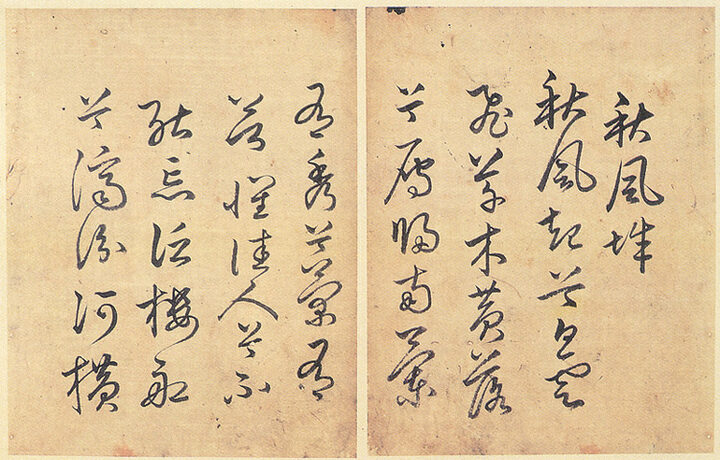 秋風辭
秋風起兮白雲
飛草木黃落
兮雁歸南蘭
有秀兮菊有
芳懷佳人兮不
能忘泛樓船
兮濟汾河橫